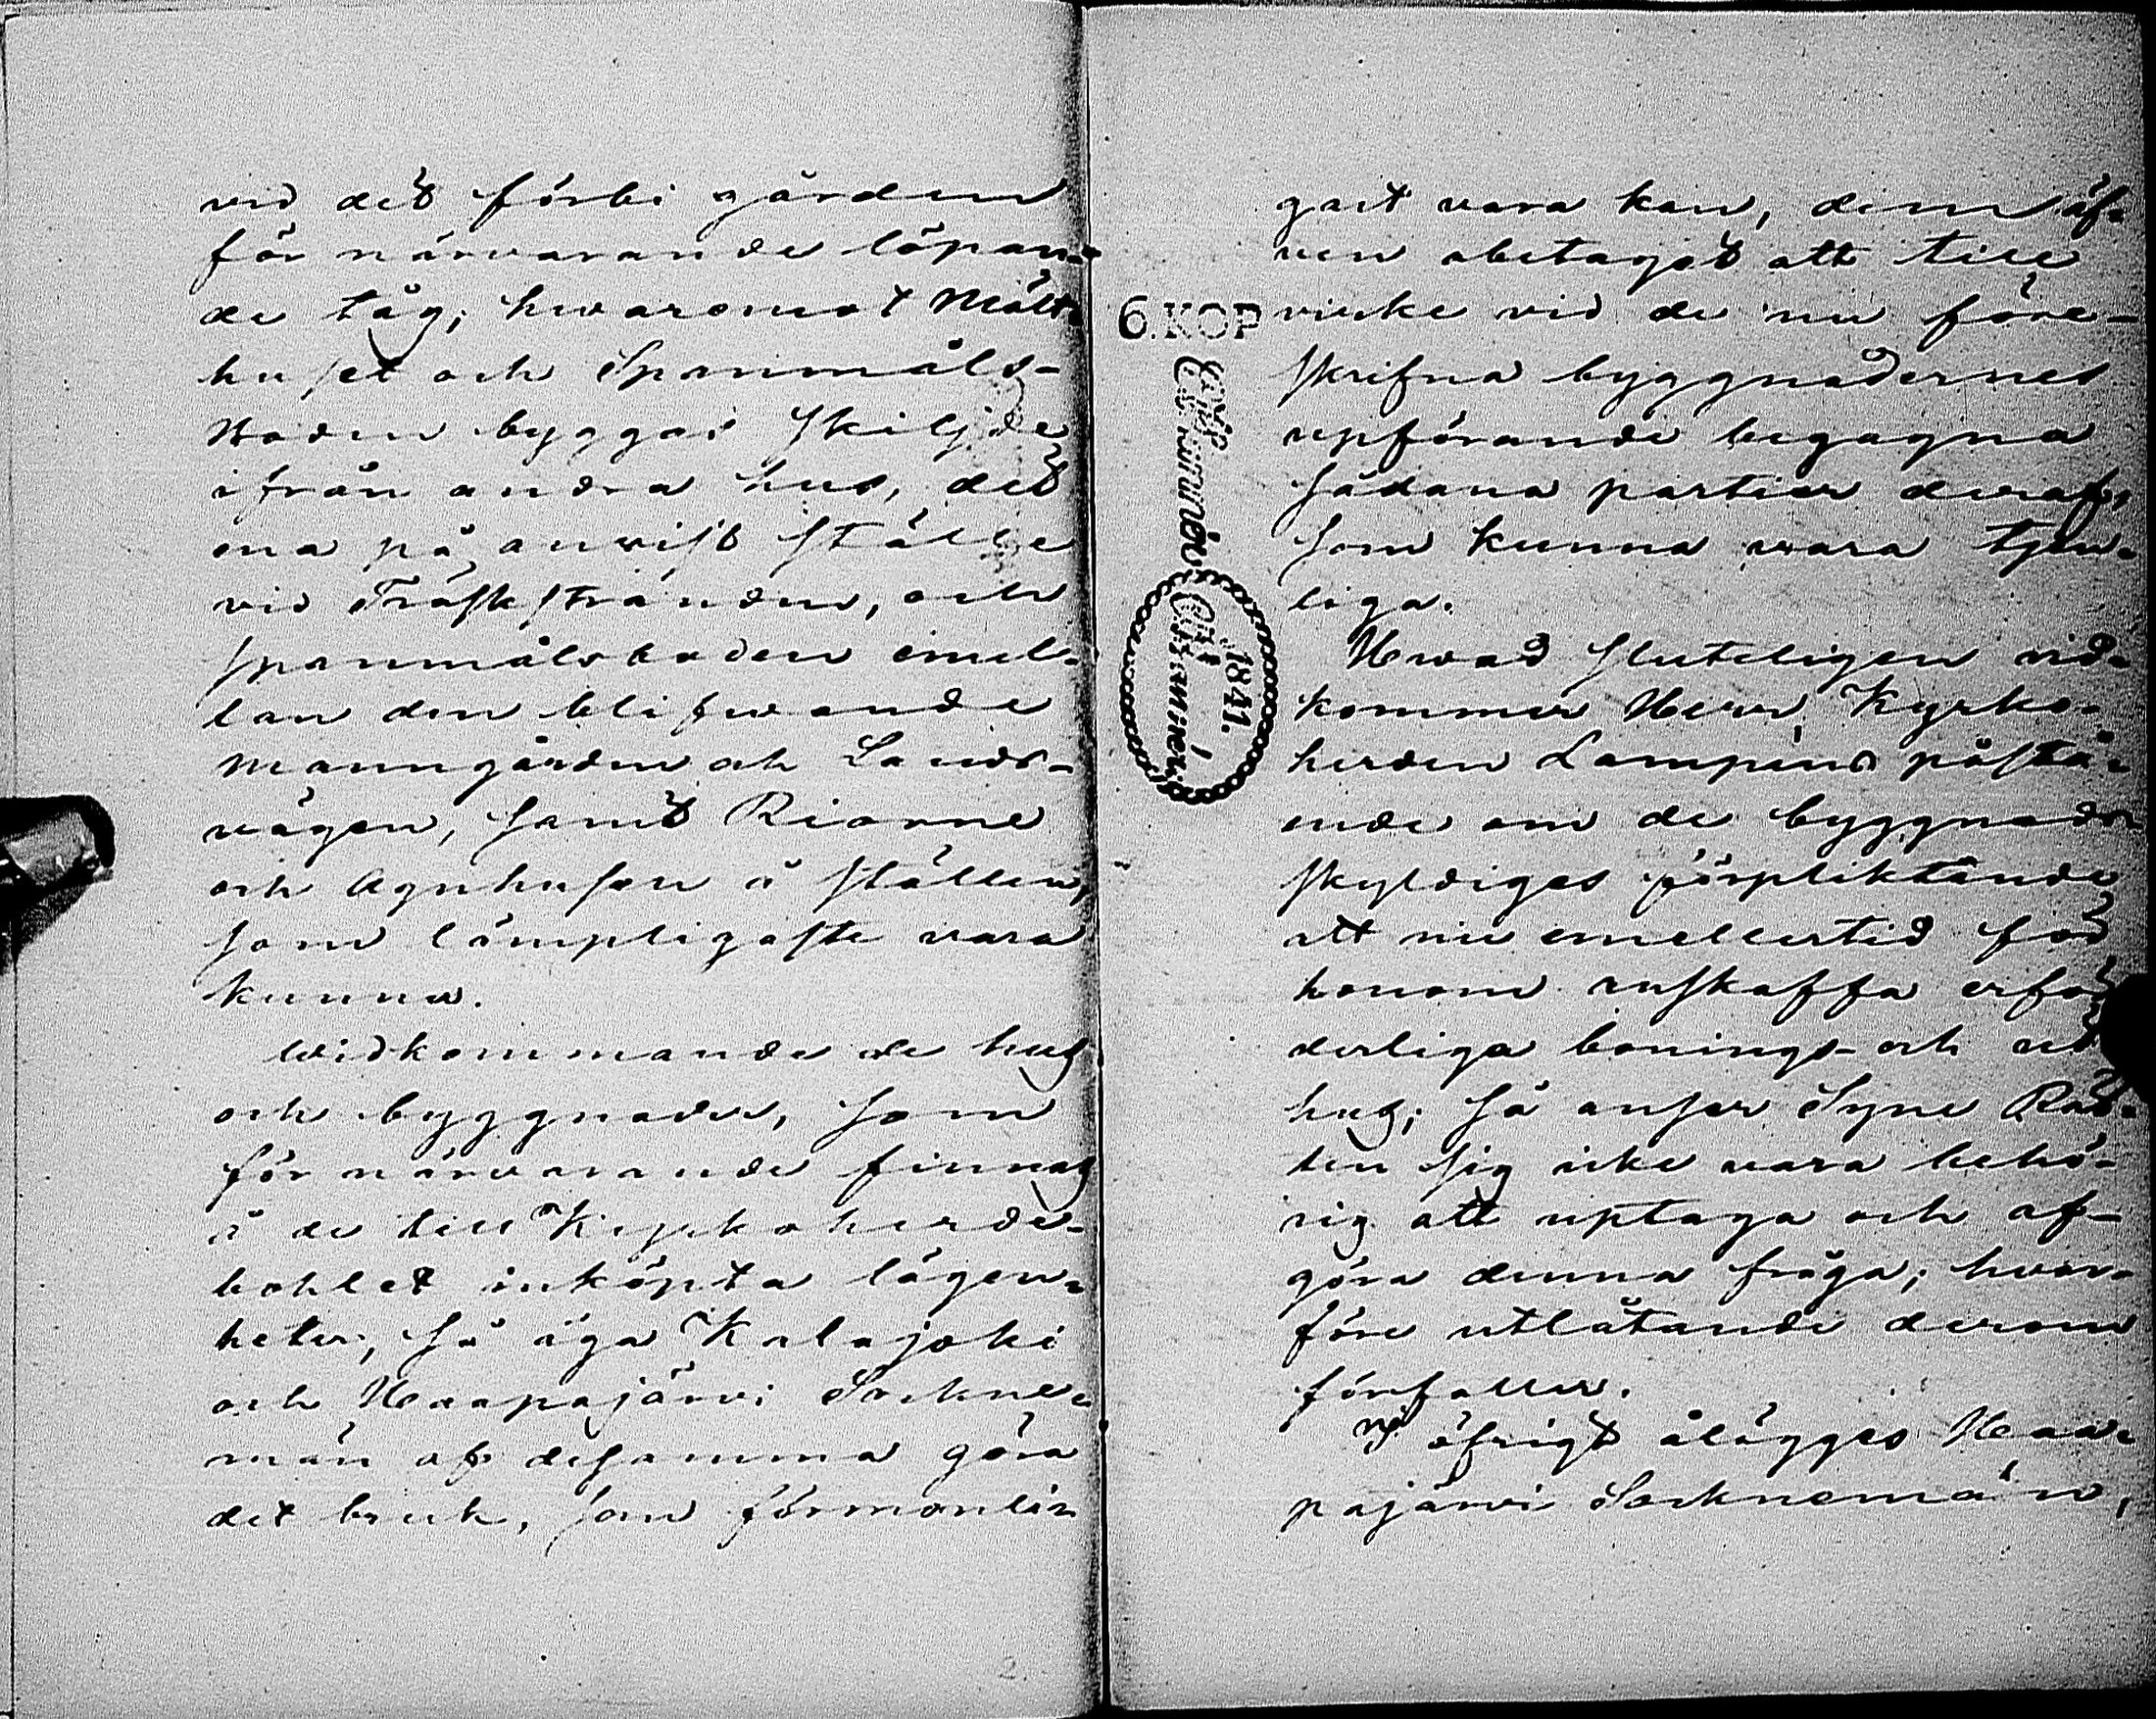 vid det förbi gården
för närvarande löpan-
de tåg; hwaremot Mält-
huset och Spanmåls-
Boden byggas skiljde
ifrån andra hus, det
ena på anvist ställe
vid Träskstranden, och
spanmålsboden emel-
lan den blifwande
Manngården och Lands-
vägen, samt Riorne
och Agnhusen å ställen,
som lämpligaste vara
kunna.
Widkommande de hus
och byggnader, som
för närvarande finnas
å de till Kyrkoherde-
bohlet inköpta lägen-
heter, så äga Kalajoki
och Haapajärvi Sockne-
män af desamma göra
det bruk, som förmonli-
gast vara kan, dem äf-
ven obetaget att till
virke vid de nu före-
skrifna byggnadernes
upförande begagna
sådana partier deraf,
som kunna vara tjen-
liga.
Hwad sluteligen vid-
kommer Herr Kyrko-
herden Lampéns påstå-
ende om de byggnads-
skyldiges förpliktande
att nu emellertid för
honom anskaffa erfor-
derliga bonings- och ut-
hus; så anser Syne Rät-
ten sig icke vara behö-
rig att uptaga och af-
göra denna fråga; hvar-
före utlåtande derom
förfaller.
I öfrigt ålägges Haa-
pajärvi Socknemän,
6. KOP
1841.